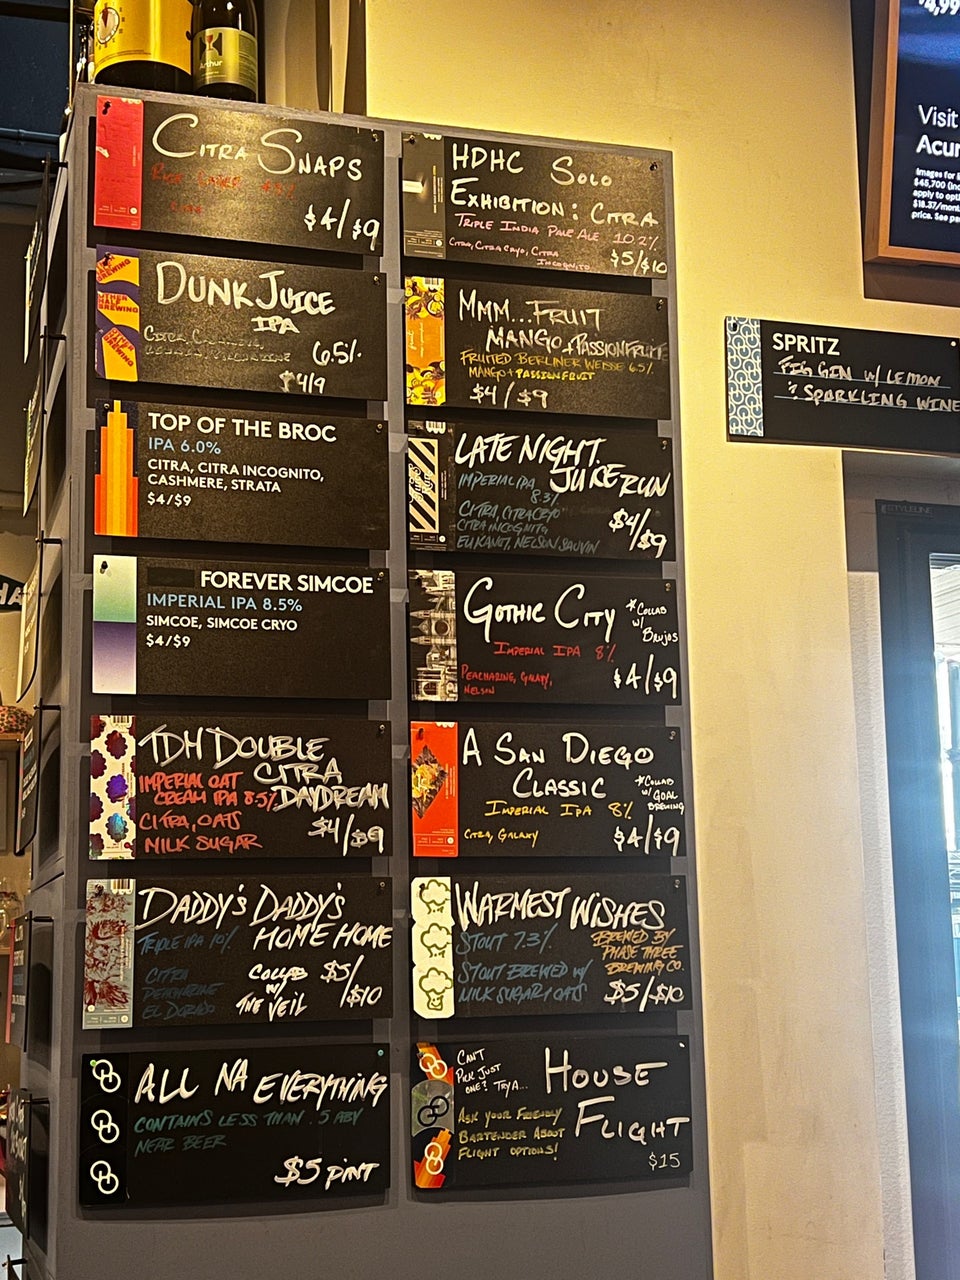 Arthur
CITRA SNAPS
RICE LAGER
$4/$9
DUNK JUICE
IPA
6.5%
$4/9
TOP OF THE BROC
IPA 6.0%
CITRA, CITRA INCOGNITO,
CASHMERE, STRATA
$4/$9
FOREVER SIMCOE
IMPERIAL IPA 8.5%
SIMCOE, SIMCOE CRYO
$4/$9
TDH DOUBLE
CITRA
DAYDREAM
IMPERIAL OAT
CREAM IPA 8.5%
CITRA, OATS
MILK SUGAR
$4/$9
DADDY'S DADDY'S
HOME HOME
TRIPLE IPA 10%
CITRA
PEACHARINE
EL DORADO
COLLAB
W/
THE VEIL
$5/
$10
ALL NA EVERYTHING
CONTAINS LESS THAN .5 ABV
NEAR BEER
$5 PINT
HDHC SOLO
EXHIBITION: CITRA
TRIPLE INDIA PALE ALE 10.2%
CITRA, CITRA CRYO, CITRA
INCOGNITO
$5/$10
MMM...FRUIT
MANGO + PASSIONFRUIT
FRUITED BERLINER WEISSE 6.5%
MANGO + PASSIONFRUIT
$4/$9
LATE NIGHT
JUICE RUN
IMPERIAL IPA
8.3%
CITRA, CITRA CRYO
CITRA INCOGNITO
EUKANOT, NELSON SAUVIN
$4/$9
GOTHIC CITY
*COLLAB
W/
BRUJOS
IMPERIAL IPA 8%
PEACHARINE, GALAXY,
NELSON
$4/$9
A SAN DIEGO
CLASSIC
*COLLAB
W/ GOAL
BREWING
IMPERIAL IPA 8%
CITRA, GALAXY
$4/$9
WARMEST WISHES
STOUT 7.3%
STOUT BREWED W/
MILK SUGAR + OATS
BREWED BY
PHASE THREE
BREWING CO.
$5/$10
CAN'T
PICK JUST
ONE? TRY A...
HOUSE
FLIGHT
ASK YOUR FRIENDLY
BARTENDER ABOUT
FLIGHT OPTIONS!
$15
SPRITZ
FIG GIN W/ LEMON
& SPARKLING WINE
Visit
Acur
Images for
$45,700 (inc
apply to opti
$18.37/mont
price. See pa
STYLELINE